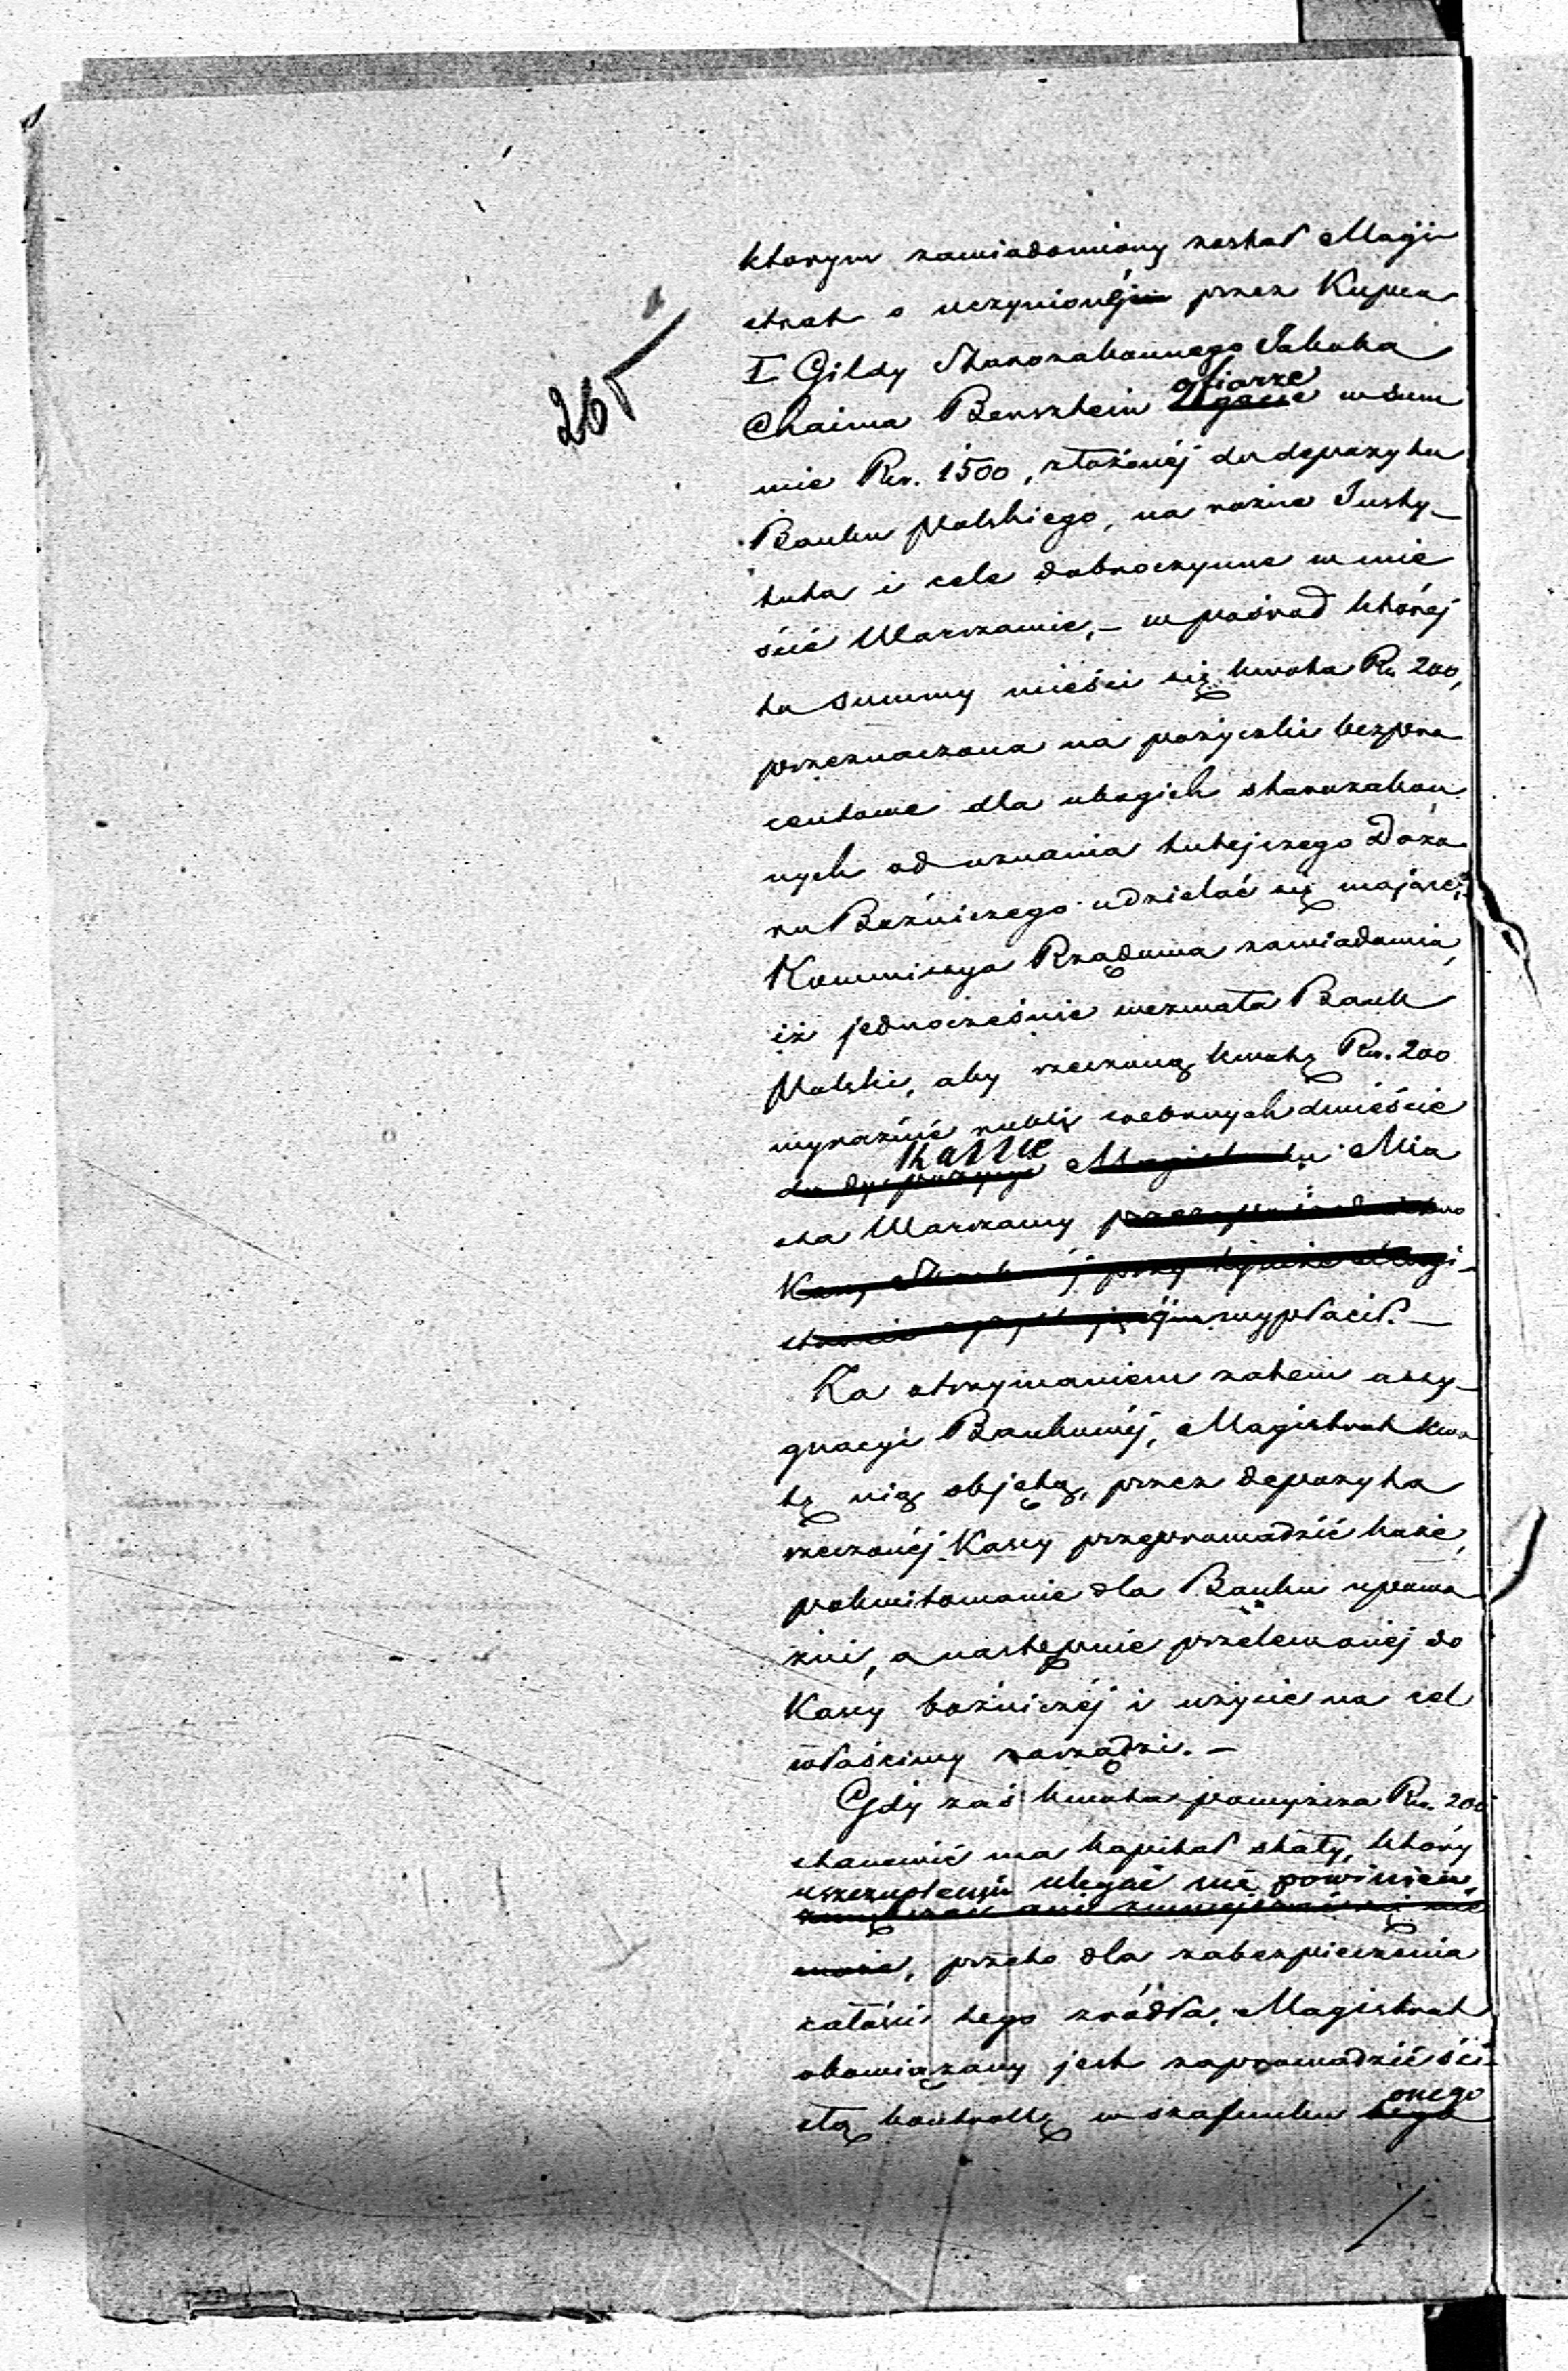 265
ktorym zawiadomiony został Magi
strat o uczynionéj przez Kupca
I Gildy Starozakonnego Jakoba
Chaima Bersztein ofiarze w sum
mie Rsr. 1500, złożonéj do depozytu
Banku Polskiego, na rożne Insty-
tuta i cele dobroczynne w mie
ście Warszawie,- w pośrod któréj
to summy mieści się kwota Rs. 200,
przeznaczona na pożyczki bezpro
centowe dla ubogich starozakon
nych od uznania tutejszego Dozo
ru Bożniczego udzielać się mające;
Kommissya Rządowa zawiadamia,
iż jednocześnie wezwała Bank
Polski, aby rzeczoną kwotę Rsr. 200
wyraźnie rubli srebrnych dwieście
do dyspozycyi Kassie Magistratu Mia
sta Warszawy
Kassy przy Magi-
wypłacił.-
Za otrzymaniem zatem assy-
gnacyi Bankowéj, Magistrat kwo
tę nią objętą, przez depozyta
rzeczonéj Kassy przeprowadzić każe,
pokwitowanie dla Banku upowa
żni, a następnie przelewanéj do
Kassy bożniczéj i użycie na cel
właściwy zarządzi.-
Gdy zaś kwota powyższa Rsr. 200
stanowić ma kapitał stały, który
uszczupleniu ulegać nie powinien,
ani zmniejszać się nie
może, przeto dla zabezpieczenia
całości tego zródła, Magistrat
obowiązany jest zaprowadzić ści
słą kontrollę w szafunku onego
tego